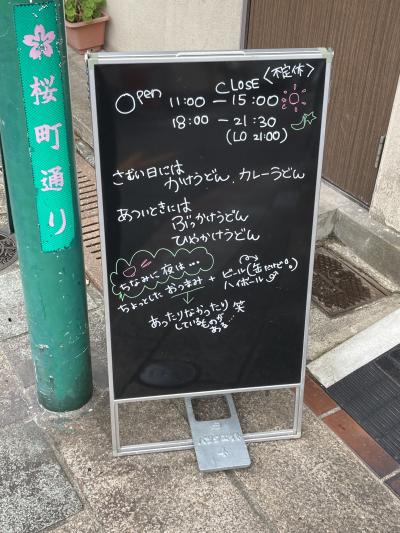 桜町通り
Open CLOSE <不定休>
11:00 — 15:00
18:00 — 21:30
(LO 21:00)
さむい日には
かけうどん、カレーうどん
あついときには
ぶっかけうどん
ひやかけうどん
ちなみに夜は…
ちょっとした おつまみ + ビール(缶だけど)
ハイボール
あったりなかったり 笑
しているものが
ある…